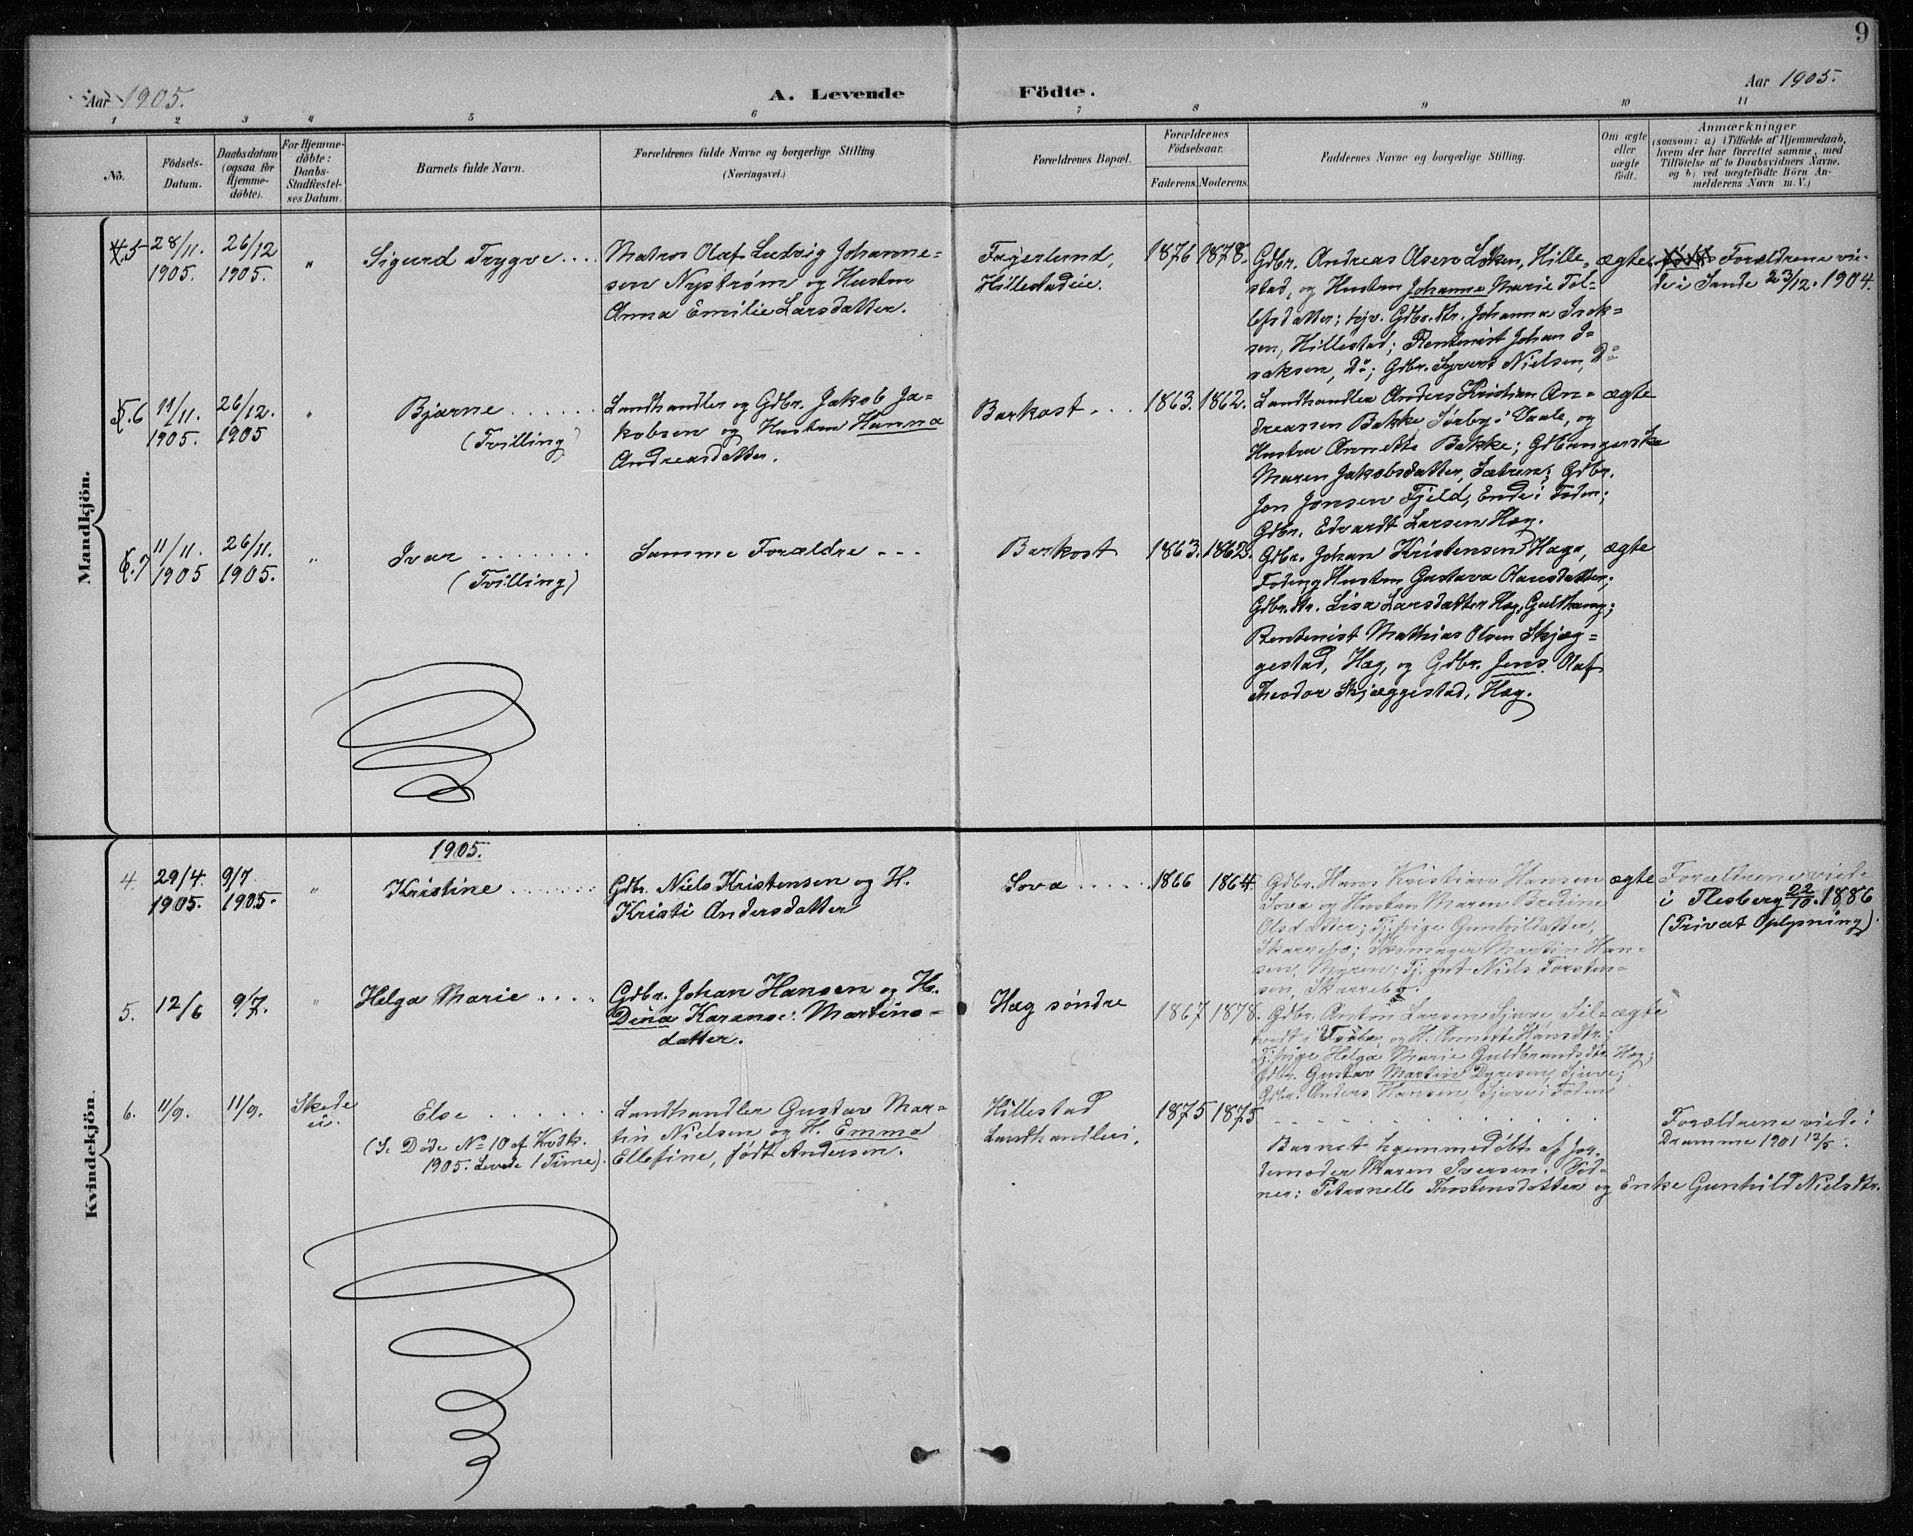 9
Aar 1905.
A. Levende Födte.
Aar 1905.
1 2 3 4 5 6 7 8 9 10 11
No.
Födsels-
Datum.
Daabsdatum
(ogsaa för
Hjemme-
döbte).
For Hjemme-
döbte:
Daabs-
Stadfæstel-
ses Datum.
Barnets fulde Navn.
Forældrenes fulde Navne og borgerlige Stilling
(Næringsvei.)
Forældrenes Bopæl.
Forældrenes
Födselsaar.
Faderens. Moderens.
Faddernes Navne og borgerlige Stilling.
Om ægte
eller
uægte
födt.
Anmærkninger
(saasom: a) i Tilfælde af Hjemmedaab,
hvem der har forrettet samme, med
Tilföielse af to Daabsvidners Navne.
og b) ved uægtefödte Börn An-
melderens Navn m. V.)
Mandkjön.
5
28/11.
1905.
26/12
1905.
"
Sigurd Trygve ....
Matros Olaf Ludvig Johanne-
sen Nystrøm og Hustru
Anna Emilie Larsdatter.
Fagerlund,
Hillestadeie.
1876 1878.
Gdbr. Andreas Olsen Løken, Hille-
stad, og Hustru Johanne Marie Tol-
lefsdatter; Gdbr.dtr. Johanna Isak-
sen, Hillestad; Rentenist Johan I-
saksen, Do; Gdbr. Syvert Nielsen, Do
ægte.
Forældrene vie-
de i Sande 23/12. 1904.
6
11/11.
1905.
26/12.
1905
"
Bjarne ......
(Tvilling)
Landhandler og Gdbr. Jakob Ja-
kobsen og Hustru Hanna
Andreasdatter.
Barkost ...
1863. 1862.
Landhandler Anders Kristian An-
dreassen Bakke, Sørby i Vaale, og
Hustru Annette Bakke; Gdbrugerske
Maren Jakobsdatter, Sætren; Gdbr.
Jon Jonsen Fjeld, Ende i Foden;
Gdbr. Edvardt Larsen Hæg.
ægte
7
11/11.
1905
26/11.
1905.
"
Ivar .......
(Tvilling)
Samme Forældre ...
Barkost
1863. 1862.
Gdbr. Johan Kristensen Haga,
Foden, og Hustru Gustava Olausdatter,
Gdbr.dtr. Lisa Larsdatter Hæg, Gulthang;
Rentenist Mathias Olsen Skjæg-
gestad, Hæg, og Gdbr. Jens Olaf
Theodor Skjæggestad, Hæg.
ægte
Kvindekjön.
1905.
4.
29/4.
1905.
9/7
1905.
"
Kristine .......
Gdbr. Niels Kristensen og H.
Kristi Andersdatter
Sova .....
1866 1864.
Gdbr. Hans Kristian Hansen
Sova og Hustru Maren Bredine
Olsdatter; Tj.pige Gunhild
Skarrebø; Skomager Martin Han-
sen, Myren; Tj.gut Niels Torsten-
sen, Skarrebø.
ægte
Forældrene viede
i Flesberg 22/10. 1886
(Privat Oplysning).
5.
12/6
9/7.
"
Helga Marie ....
Gdbr. Johan Hansen og H.
Dina Karense Martins-
datter.
Hæg søndre
1867 1878.
Gdbr. Anton Larsen Sjove Sil-
og H. Annette Hansdtr;
Tj.pige Helga Marie Guldbrandsdtr. Hæg;
Gdbr. Gustav Martin Dyresen, Sjove;
Gdbr. Anders Hansen, Sjove i Foden
ægte
6.
11/9.
11/9.
Skede
ei.
Else .......
(Se Døde No 10 af Kvdk.
1905. Levede 1 Time).
Landhandler Gustav Mar-
tin Nielsen og H. Emma
Ellefine, født Andersen.
Hillestad
Landhandleri.
1875 1875
Barnet hjemmedøbt af Jor-
demoder Maren Iversen. Vid-
ner: Petronelle Thorstensdatter og Enke Gunhild Nielsdtr.
Forældrene viede i
Dramme 1901 12/5.